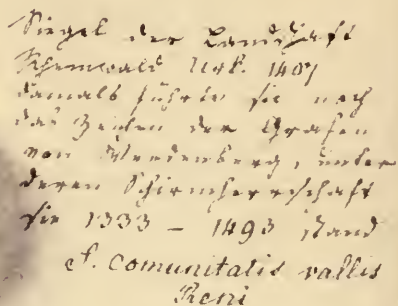 Siegel der Landschaft
Rheinwald Urk. 1407
damals führte sie noch
das Zeichen der Grafen
von Werdenberg, unter
deren Schirmherrschaft
sie 1333 - 1493 stand
S. comunitatis vallis
Reni